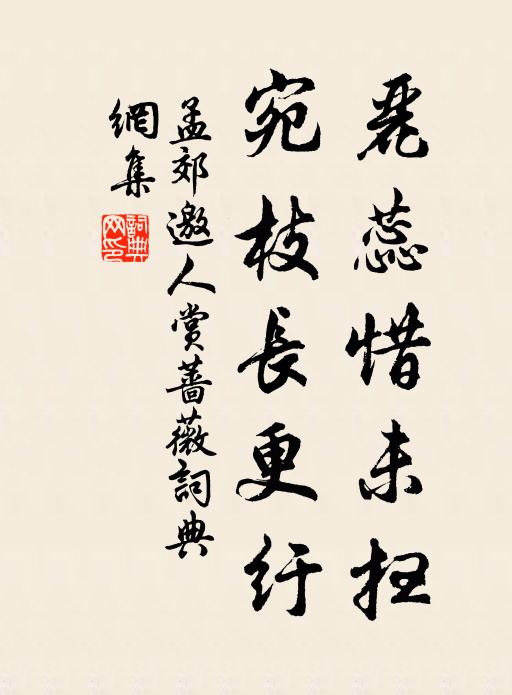 麗蕊惜未扫
宛枝長更紆
孟郊邀人賞薔薇詞典
網集
詞典
网印